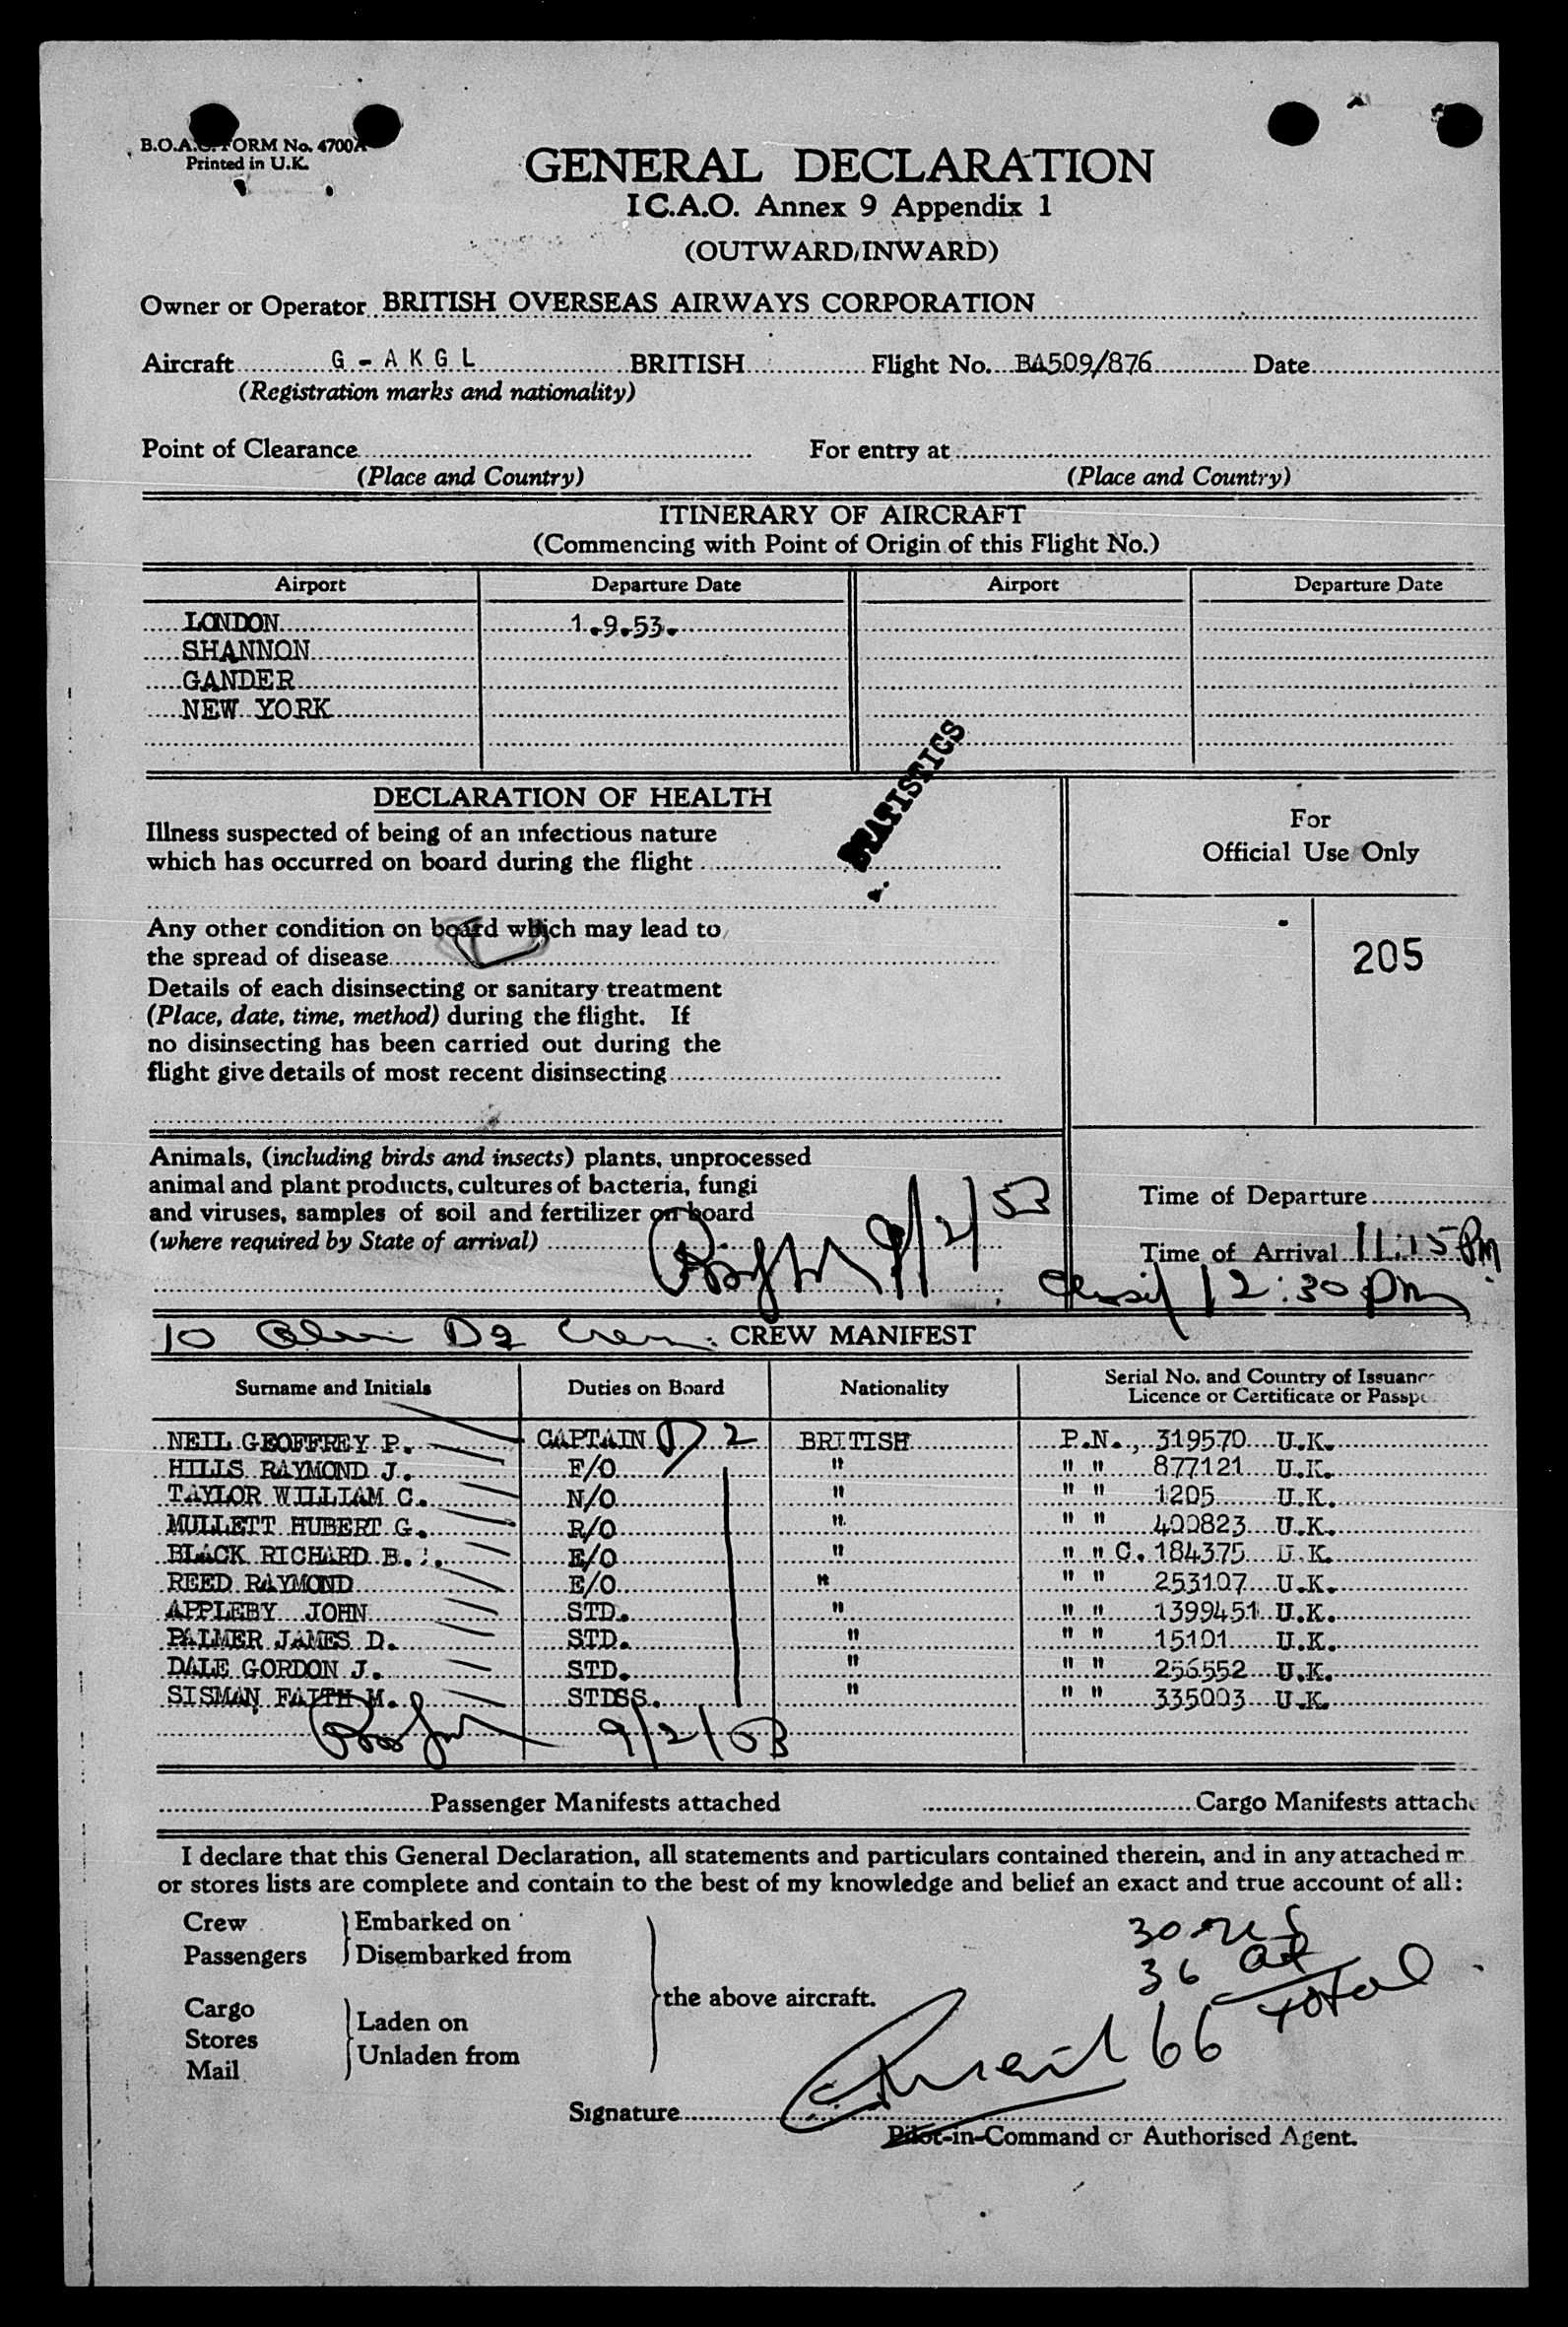 B.O.A.C. FORM No. 4700A
Printed in U.K.
GENERAL DECLARATION
I C.A.O. Annex 9 Appendix 1
(OUTWARD/INWARD)
Owner or Operator BRITISH OVERSEAS AIRWAYS CORPORATION
Aircraft G - A K G L BRITISH Flight No. BA509/876 Date
(Registration marks and nationality)
Point of Clearance For entry at
(Place and Country) (Place and Country)
ITINERARY OF AIRCRAFT
(Commencing with Point of Origin of this Flight No.)
Airport Departure Date Airport Departure Date
LONDON 1.9.53.
SHANNON
GANDER
NEW YORK
STATISTICS
DECLARATION OF HEALTH
Illness suspected of being of an infectious nature
which has occurred on board during the flight
Any other condition on board which may lead to
the spread of disease
Details of each disinsecting or sanitary treatment
(Place, date, time, method) during the flight. If
no disinsecting has been carried out during the
flight give details of most recent disinsecting
For
Official Use Only
205
Animals, (including birds and insects) plants, unprocessed
animal and plant products, cultures of bacteria, fungi
and viruses, samples of soil and fertilizer on board
(where required by State of arrival) 9/2/53
Time of Departure
Time of Arrival 11:15 PM
12:30 PM
10 D2 Crew CREW MANIFEST
Surname and Initials Duties on Board Nationality Serial No. and Country of Issuance
Licence or Certificate or Passp
NEIL GEOFFREY P. CAPTAIN D 2 BRITISH P.N., 319570 U.K.
HILLS RAYMOND J. F/O " " " 877121 U.K.
TAYLOR WILLIAM C. N/O " " " 1205 U.K.
MULLETT HUBERT G. R/O " " " 400823 U.K.
BLACK RICHARD B. E/O " " " C. 184375 U.K.
REED RAYMOND E/O " " " 253107 U.K.
APPLEBY JOHN STD. " " " 1399451 U.K.
PALMER JAMES D. STD. " " " 15101 U.K.
DALE GORDON J. STD. " " " 256552 U.K.
SISMAN FAITH M. STDSS. " " " 335003 U.K.
9/2/53
Passenger Manifests attached Cargo Manifests attach
I declare that this General Declaration, all statements and particulars contained therein, and in any attached m
or stores lists are complete and contain to the best of my knowledge and belief an exact and true account of all:
Crew Embarked on
Passengers Disembarked from
the above aircraft.
Cargo Laden on
Stores Unladen from
Mail
30
36
66 total
Signature
Pilot-in-Command or Authorised Agent.